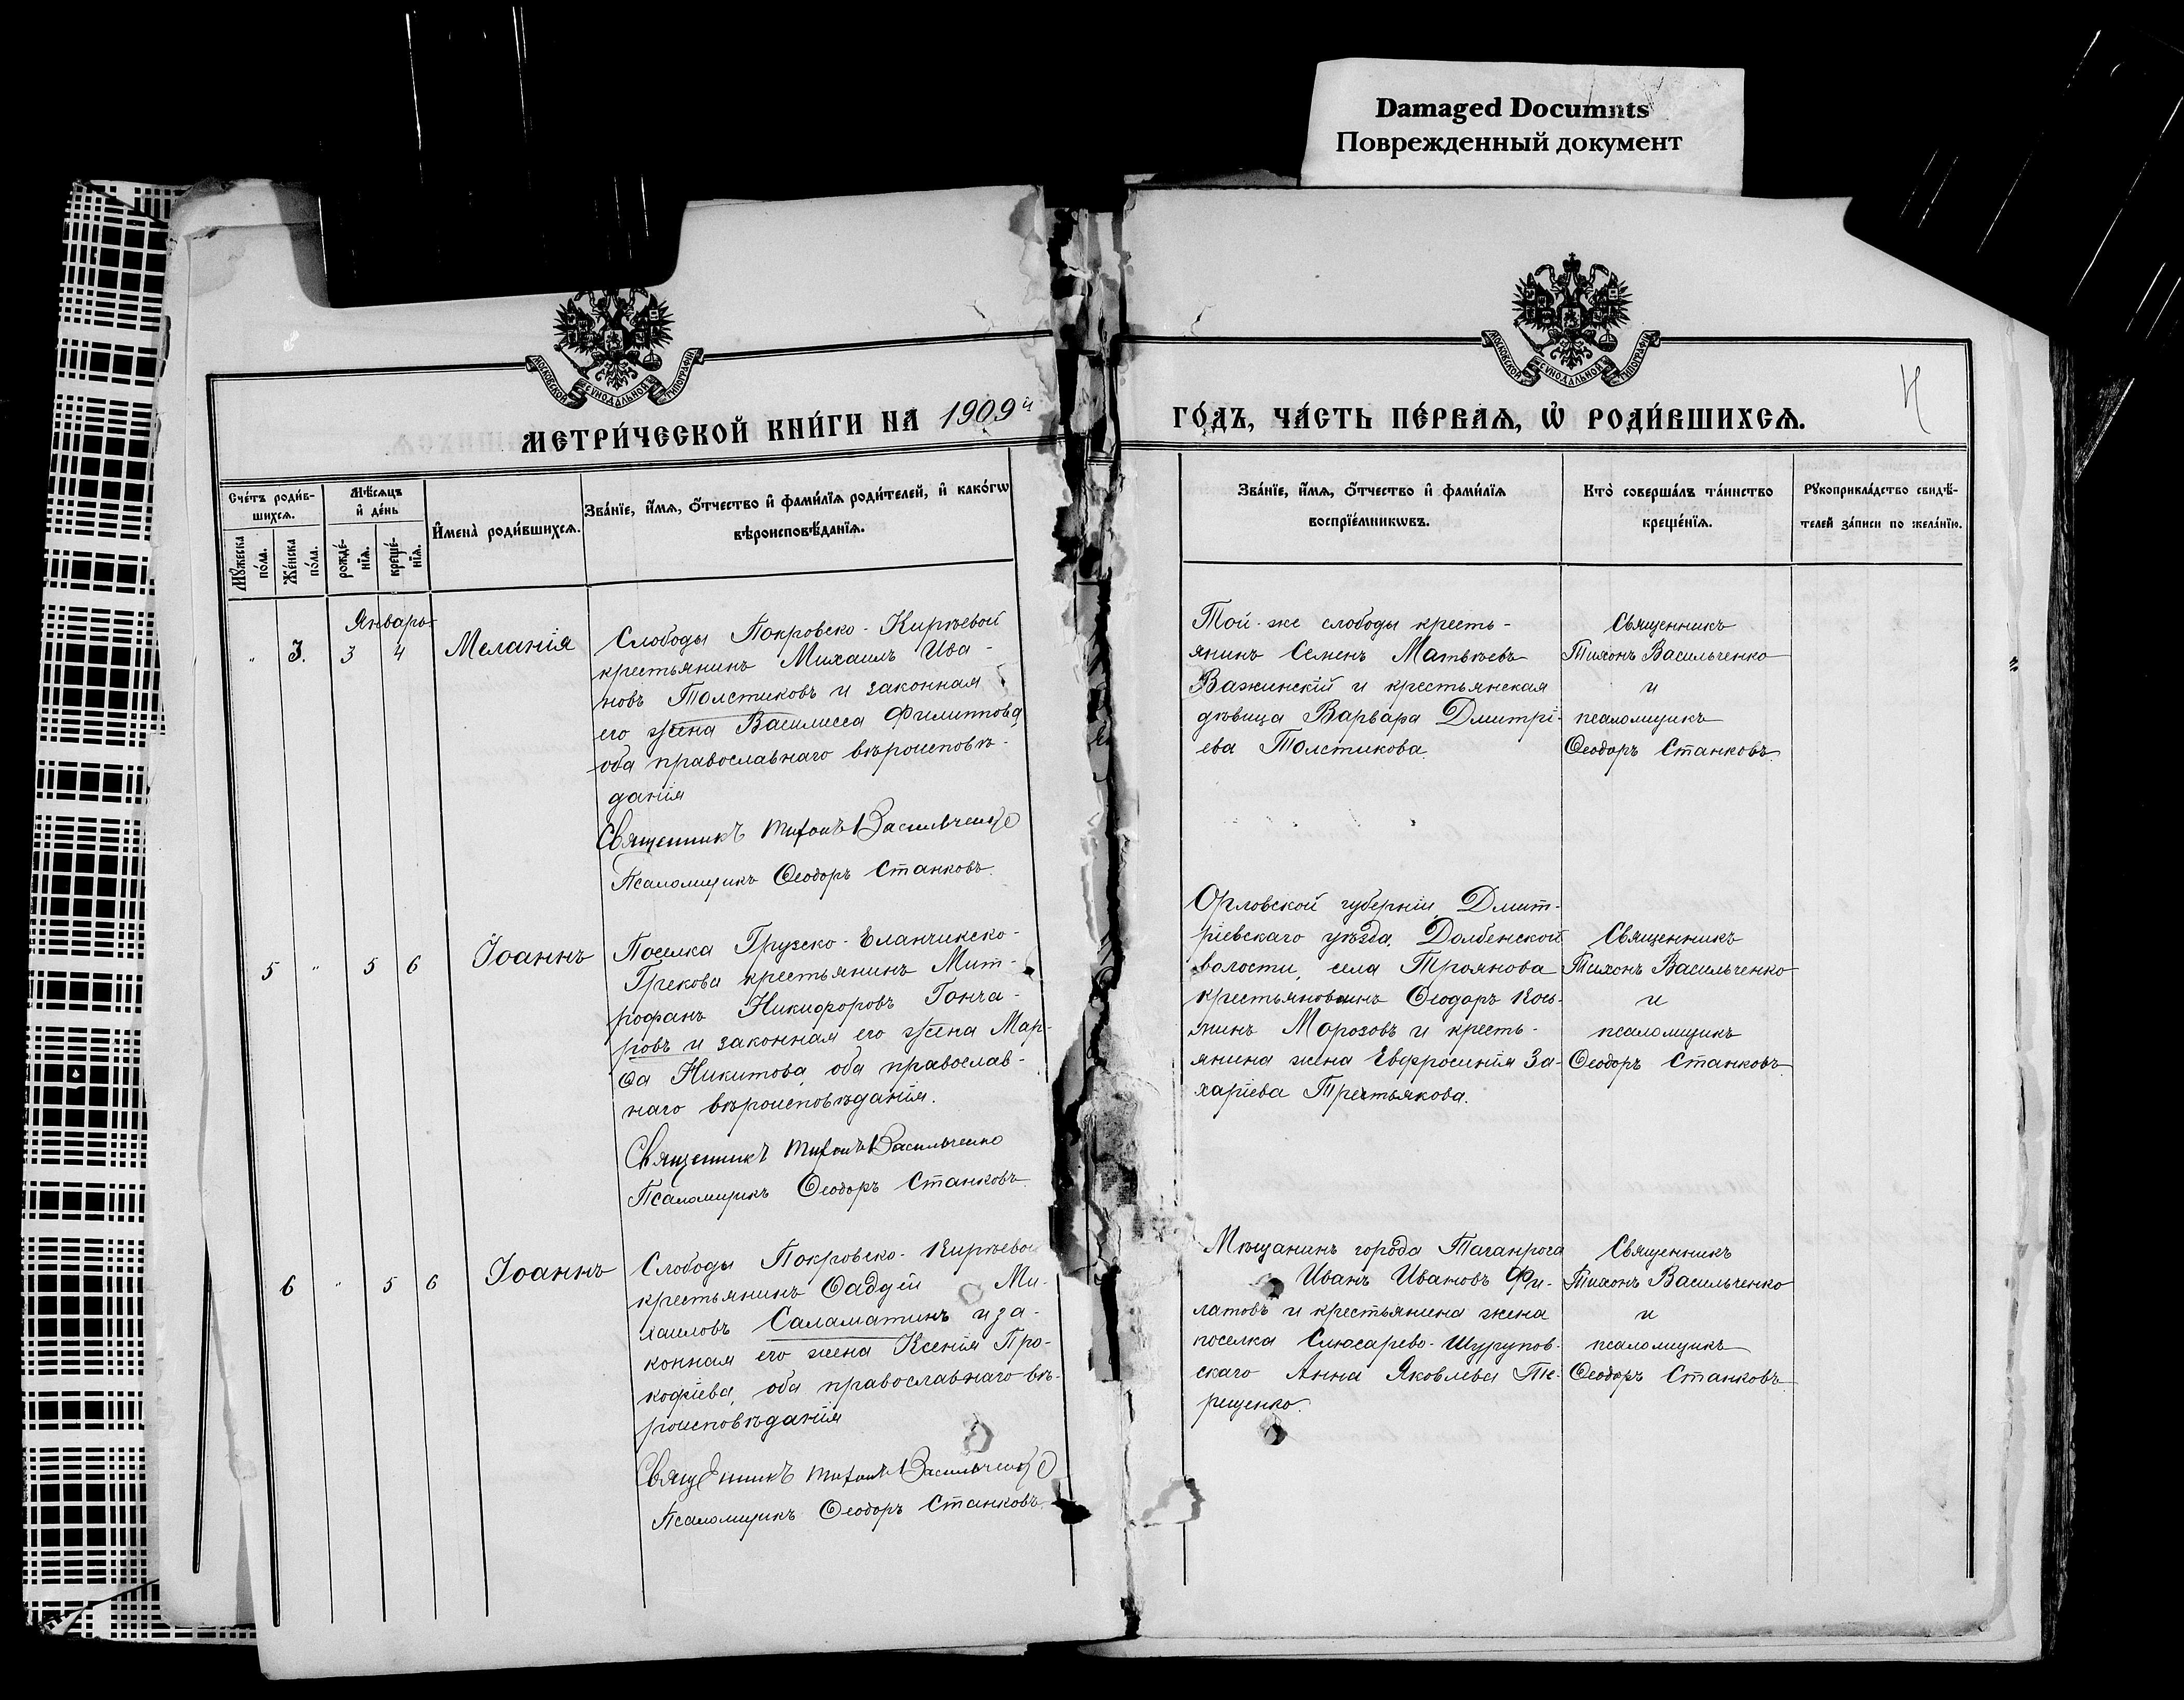 Damaged Documnts
Поврежденный документ
МОСКОВСКОЙ СУНОДАЛЬНОЙ ТИПОГРАФІИ
МОСКОВСКОЙ СУНОДАЛЬНОЙ ТИПОГРАФІИ
МЕТРИ́ЧЕСКОЙ КНИ́ГИ НА 1909й
ГО́ДЪ, ЧА́СТЬ ПЕ́РВАѦ, Ѡ҆ РОДИ́ВШИХСѦ.
Сче́тъ роди́в-
шихсѧ.
Мѣ́сѧцъ
и҆ де́нь
Мꙋ́жеска
по́ла.
Же́нска
по́ла.
рожде́-
нїѧ.
креще́-
нїѧ.
И҆мена̀ роди́вшихсѧ.
Зва́нїе, и҆́мѧ, ѻ҆́тчество и҆ фами́лїѧ роди́телей, и҆ како́гѡ
вѣроисповѣ́данїѧ.
Зва́нїе, и҆́мѧ, ѻ҆́тчество и҆ фами́лїѧ
воспрїе́мникѡвъ.
Кто̀ соверша́лъ та́инство
креще́нїѧ.
Рꙋкоприкла́дство свидѣ́-
телей за́писи по жела́нїю.
Январь
" 3. 3 4 Меланія
Слободы Покровско-Кирѣевой
крестьянинъ Михаилъ Ива-
новъ Толстиковъ и законная
его жена Василисса Филиппова
оба православнаго вѣроисповѣ-
данія
Священникъ Тихонъ Васильченко
Псаломщикъ Ѳеодоръ Станковъ.
Той-же слободы кресть-
янинъ Семенъ Матвѣевъ
Важинскій и крестьянская
дѣвица Варвара Дмитрі-
ева Толстикова.
Священникъ
Тихонъ Васильченко
и
псаломщикъ
Ѳеодоръ Станковъ.
5 " 5 6 Іоаннъ
Поселка Грузско-Еланчикско-
Грекова крестьянинъ Мит-
рофанъ Никифоровъ Гонча-
ровъ и законная его жена Мар-
ѳа Никитова, оба православ-
наго вѣроисповѣданія.
Священникъ Тихонъ Васильченко
Псаломщикъ Ѳеодоръ Станковъ.
Орловской губерніи, Дмит-
ріевскаго уѣзда, Долбенской
волости, села Троянова
Ѳеодоръ Козь-
минъ Морозовъ и кресть-
янина жена Евфросинія За-
харіева Третьякова.
Священникъ
Тихонъ Васильченко
и
псаломщикъ
Ѳеодоръ Станковъ
6 " 5 6 Іоаннъ
Слободы Покровско-Кирѣевой
крестьянинъ Ѳаддей Ми-
хаиловъ Саламатинъ и за-
конная его жена Ксенія Про-
кофіева, оба православнаго вѣ-
роисповѣданія
Священникъ Тихонъ Васильченко
Псаломщикъ Ѳеодоръ Станковъ.
Мѣщанинъ города Таганрога
Иванъ Ивановъ Фи-
латовъ и крестьянина жена
поселка Слюсарево-Шурупов-
скаго Анна Яковлева Те-
рещенко.
Священникъ
Тихонъ Васильченко
и
псаломщикъ
Ѳеодоръ Станковъ.